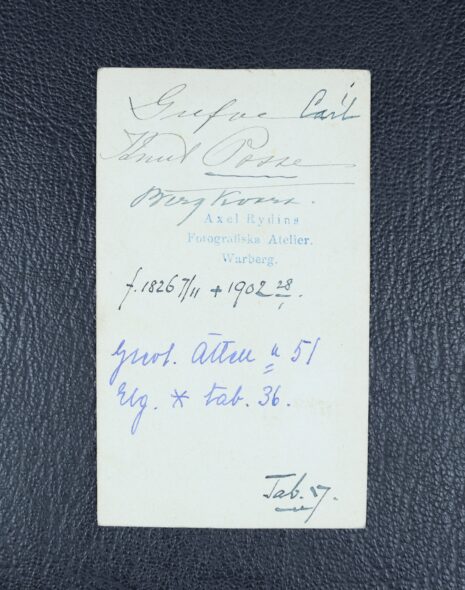 Grefve Carl
Knut Posse
Bergkvara.
Axel Rydins
Fotografiska Atelier.
Warberg.
f. 1826 7/11 + 1902 28/1.
Grevl. Ätten n 51
Elg. * tab. 36.
Tab. 17.